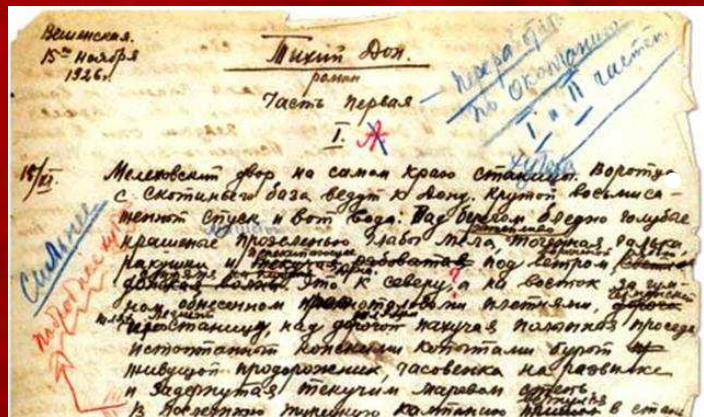 Вешенская.
15го ноября
1926г.
Тихий Дон.
роман
Часть первая
I.
переработать
по окончании
I и II частей.
хутора
15/XI.
Мелеховский двор на самом краю станицы. Воротца
с скотиньего база ведут к Дону. Крутой восьмиса-
женный спуск и вот вода. Над берегом бледно голубые
крашеные прозеленью глыбы мела,
ракушки и под ветром
Это к северу, а на восток за гум-
ном обнесенном плетнями,
над дорогой пахучая полынная проседь
истоптанной конскими копытами бурой
живущой придорожник, часовенка на развилке
и задернутая текучим маревом степь
В последнюю турецкую кампанию в стан
Сильнее
подробнее